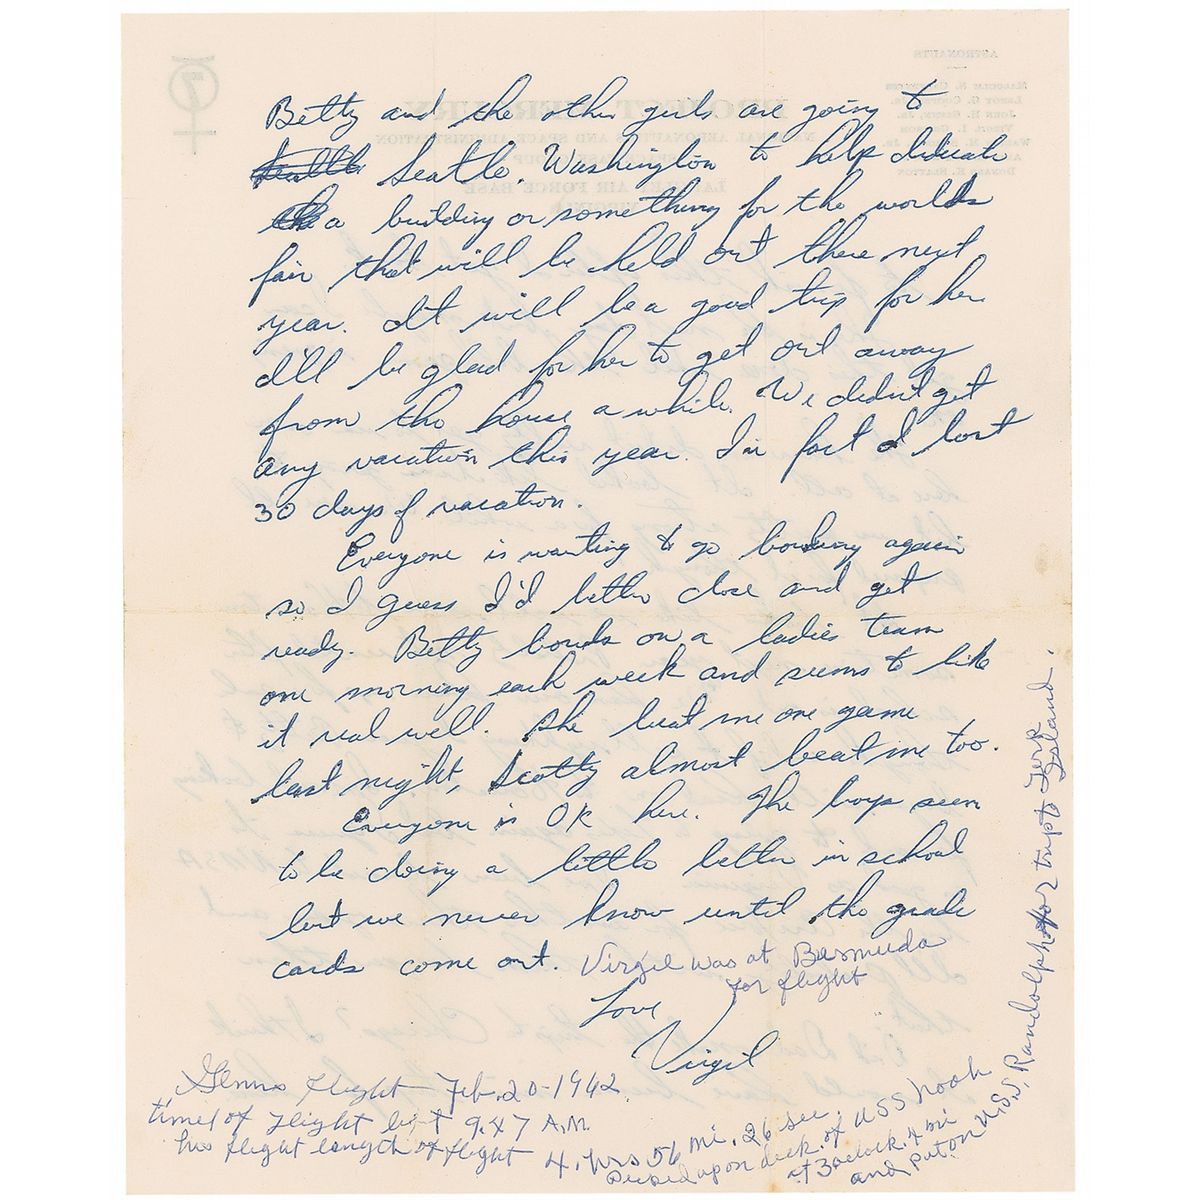 Betty and the other girls are going to
Seattle Seatle, Washington to help didicate
a building or something for the worlds
fair that will be held out there next
year. It will be a good trip for her.
I'll be glad for her to get out away
from the house a while. We didn't get
any vacation this year. In fact I lost
30 days of vacation.
Everyone is wanting to go bowling again
so I guess I'd better close and get
ready. Betty bowls on a ladies team
one morning each week and seems to like
it real well. She beat me one game
last night, Scotty almost beat me too.
Everyone is OK here. The boys seem
to be doing a little better in school
but we never know until the grade
cards come out. Virgil was at Bermuda
for flight
Love
Virgil
Glenns Flight Feb. 20-1962
time of Flight 9:47 A.M.
his flight length of flight 4. hrs 56 mi. 26 sec.
Picked up on deck of USS Noah
at 3 oclock. 4 mi
and put on U.S.S. Randolph for trip to Turk
Island.
ASTRONAUTS
MALCOLM S. CARPENTER
LEROY G. COOPER, JR.
JOHN H. GLENN, JR.
VIRGIL I. GRISSOM
WALTER M. SCHIRRA, JR.
DONALD K. SLAYTON
PROJECT MERCURY
NATIONAL AERONAUTICS AND SPACE ADMINISTRATION
LANGLEY AIR FORCE BASE
VIRGINIA
7